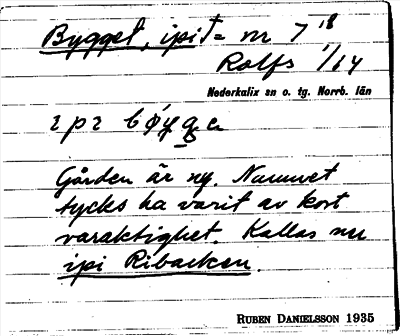 Bygget, ipit= nr 7 18
Rolfs 1/64
Nederkalix sn o. tg. Norrb. län
ɩpɩ bǿyga
Gården är ny. Namnet
tycks ha varit av kort
varaktighet. Kallas nu
ipi Ribacken.
RUBEN DANIELSSON 1935